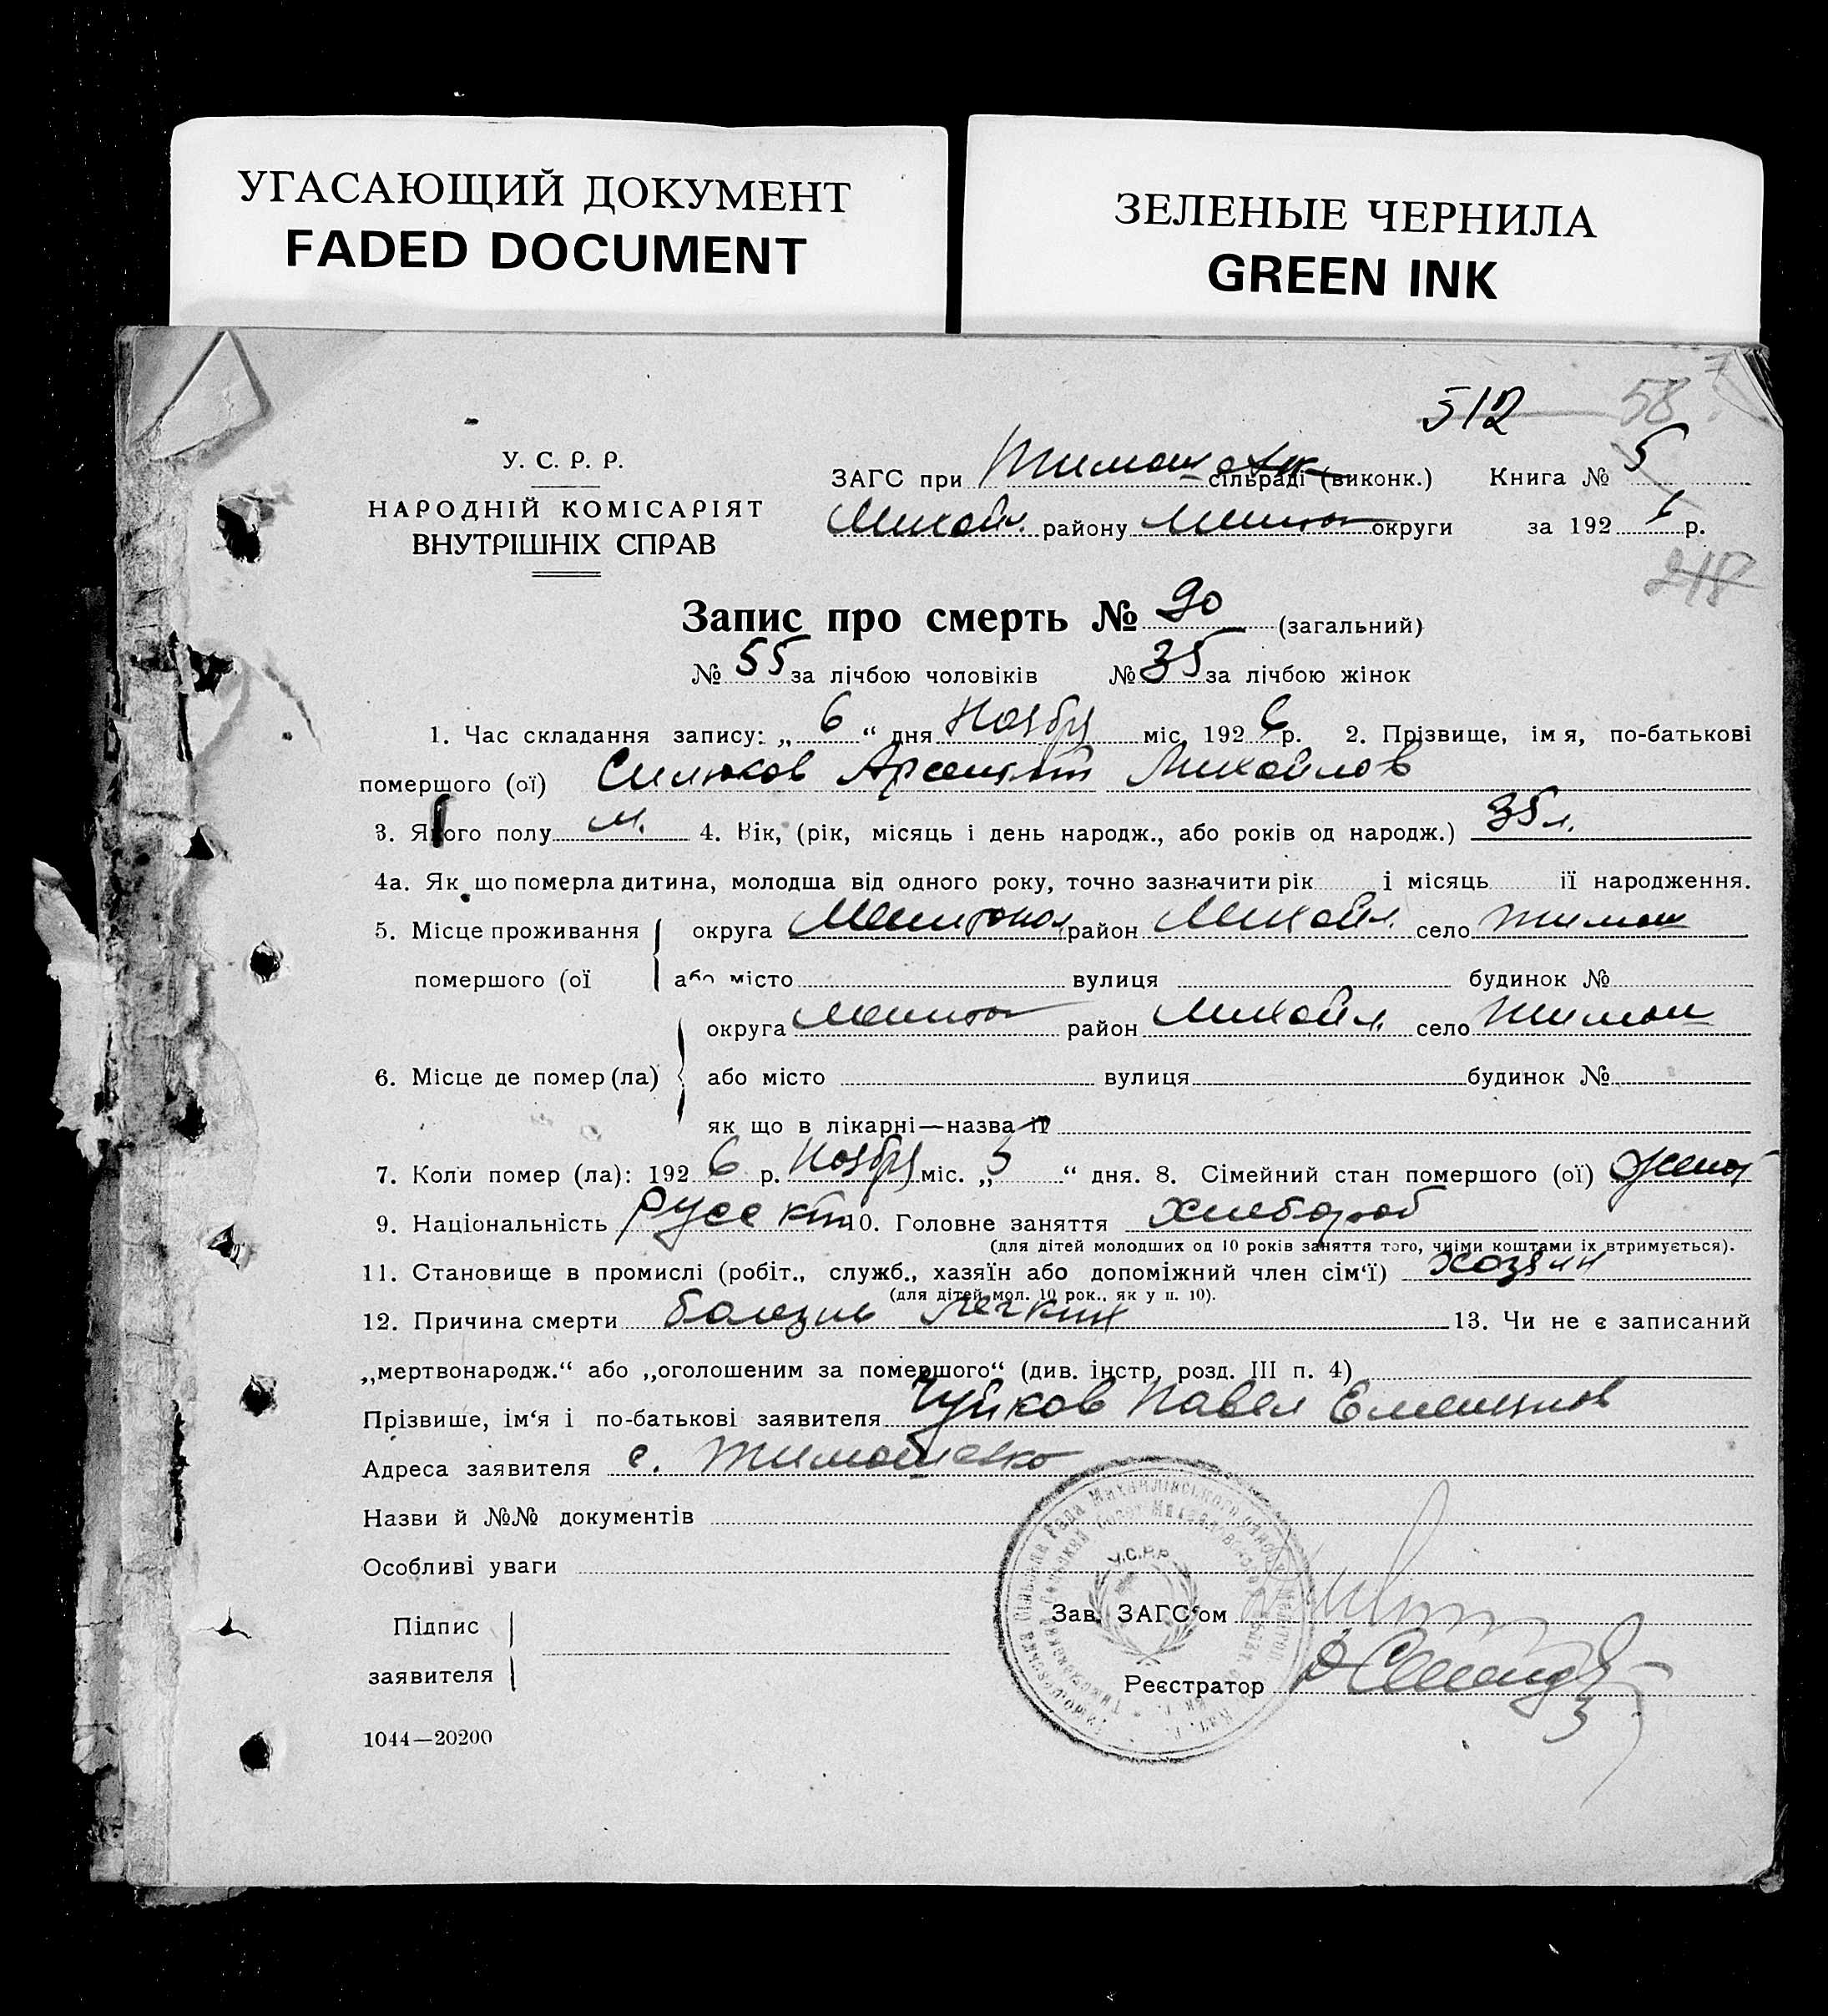 УГАСАЮЩИЙ ДОКУМЕНТ
FADED DOCUMENT
ЗЕЛЕНЫЕ ЧЕРНИЛА
GREEN INK
512 58
У. С. Р. Р.
НАРОДНІЙ КОМІСАРІЯТ
ВНУТРІШНІХ СПРАВ
ЗАГС при Тимош сільраді (виконк.) Книга № 5
Михайл. району Мелитоп округи за 192 6 р.
218
Запис про смерть № 90 (загальний)
№ 55 за лічбою чоловіків № 35 за лічбою жінок
1. Час складання запису: „ 6 “ дня Ноября міс. 192 6 р. 2. Прізвище, імя, по-батькові
помершого (ої) Силюков Арсентий Михайлов
3. Якого полу м. 4. Вік, (рік, місяць і день народж., або років од народж.) 35 л.
4а. Як що померла дитина, молодша від одного року, точно зазначити рік і місяць її народження.
5. Місце проживання помершого (ої
округа Мелитопол район Михайл. село Тимош
або місто вулиця будинок №
6. Місце де помер (ла)
округа Мелитоп район Михайл. село Тимош
або місто вулиця будинок №
як що в лікарні—назва її
7. Коли помер (ла): 192 6 р. Ноября міс. „ 5 “ дня. 8. Сімейний стан помершого (ої) женат
9. Національність Русский 10. Головне заняття Хлебороб
(для дітей молодших од 10 років заняття того, чиїми коштами їх втримується).
11. Становище в промислі (робіт., служб., хазяїн або допоміжний член сім‘ї) хозяин
(для дітей мол. 10 рок., як у п. 10).
12. Причина смерти болезнь легких 13. Чи не є записаний
„мертвонародж.“ або „оголошеним за помершого“ (див. інстр. розд. III п. 4)
Прізвише, ім‘я і по-батькові заявителя Чуйков Павел Емельянов
Адреса заявителя с. Тимошевка
Назви й №№ документів
Особливі уваги
Підпис
заявителя
У.С.Р.Р.
Зав. ЗАГС‘ом
Реєстратор
1044—20200